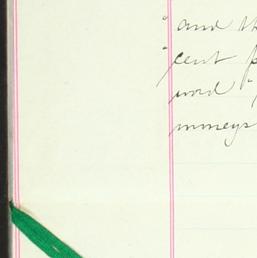 "and th
"cent p
word "
moneys